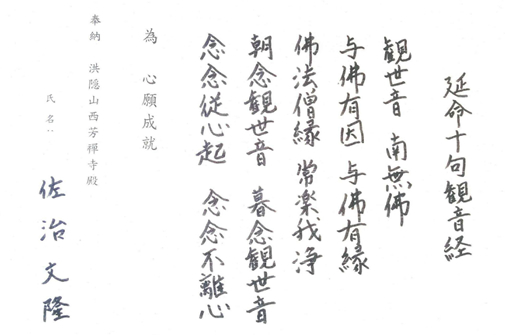 延命十句観音経
観世音 南無佛
与佛有因 与佛有縁
佛法僧縁 常楽我浄
朝念観世音 暮念観世音
念念従心起 念念不離心
為 心願成就
奉納 洪隠山西芳禅寺殿
氏名
佐治文隆